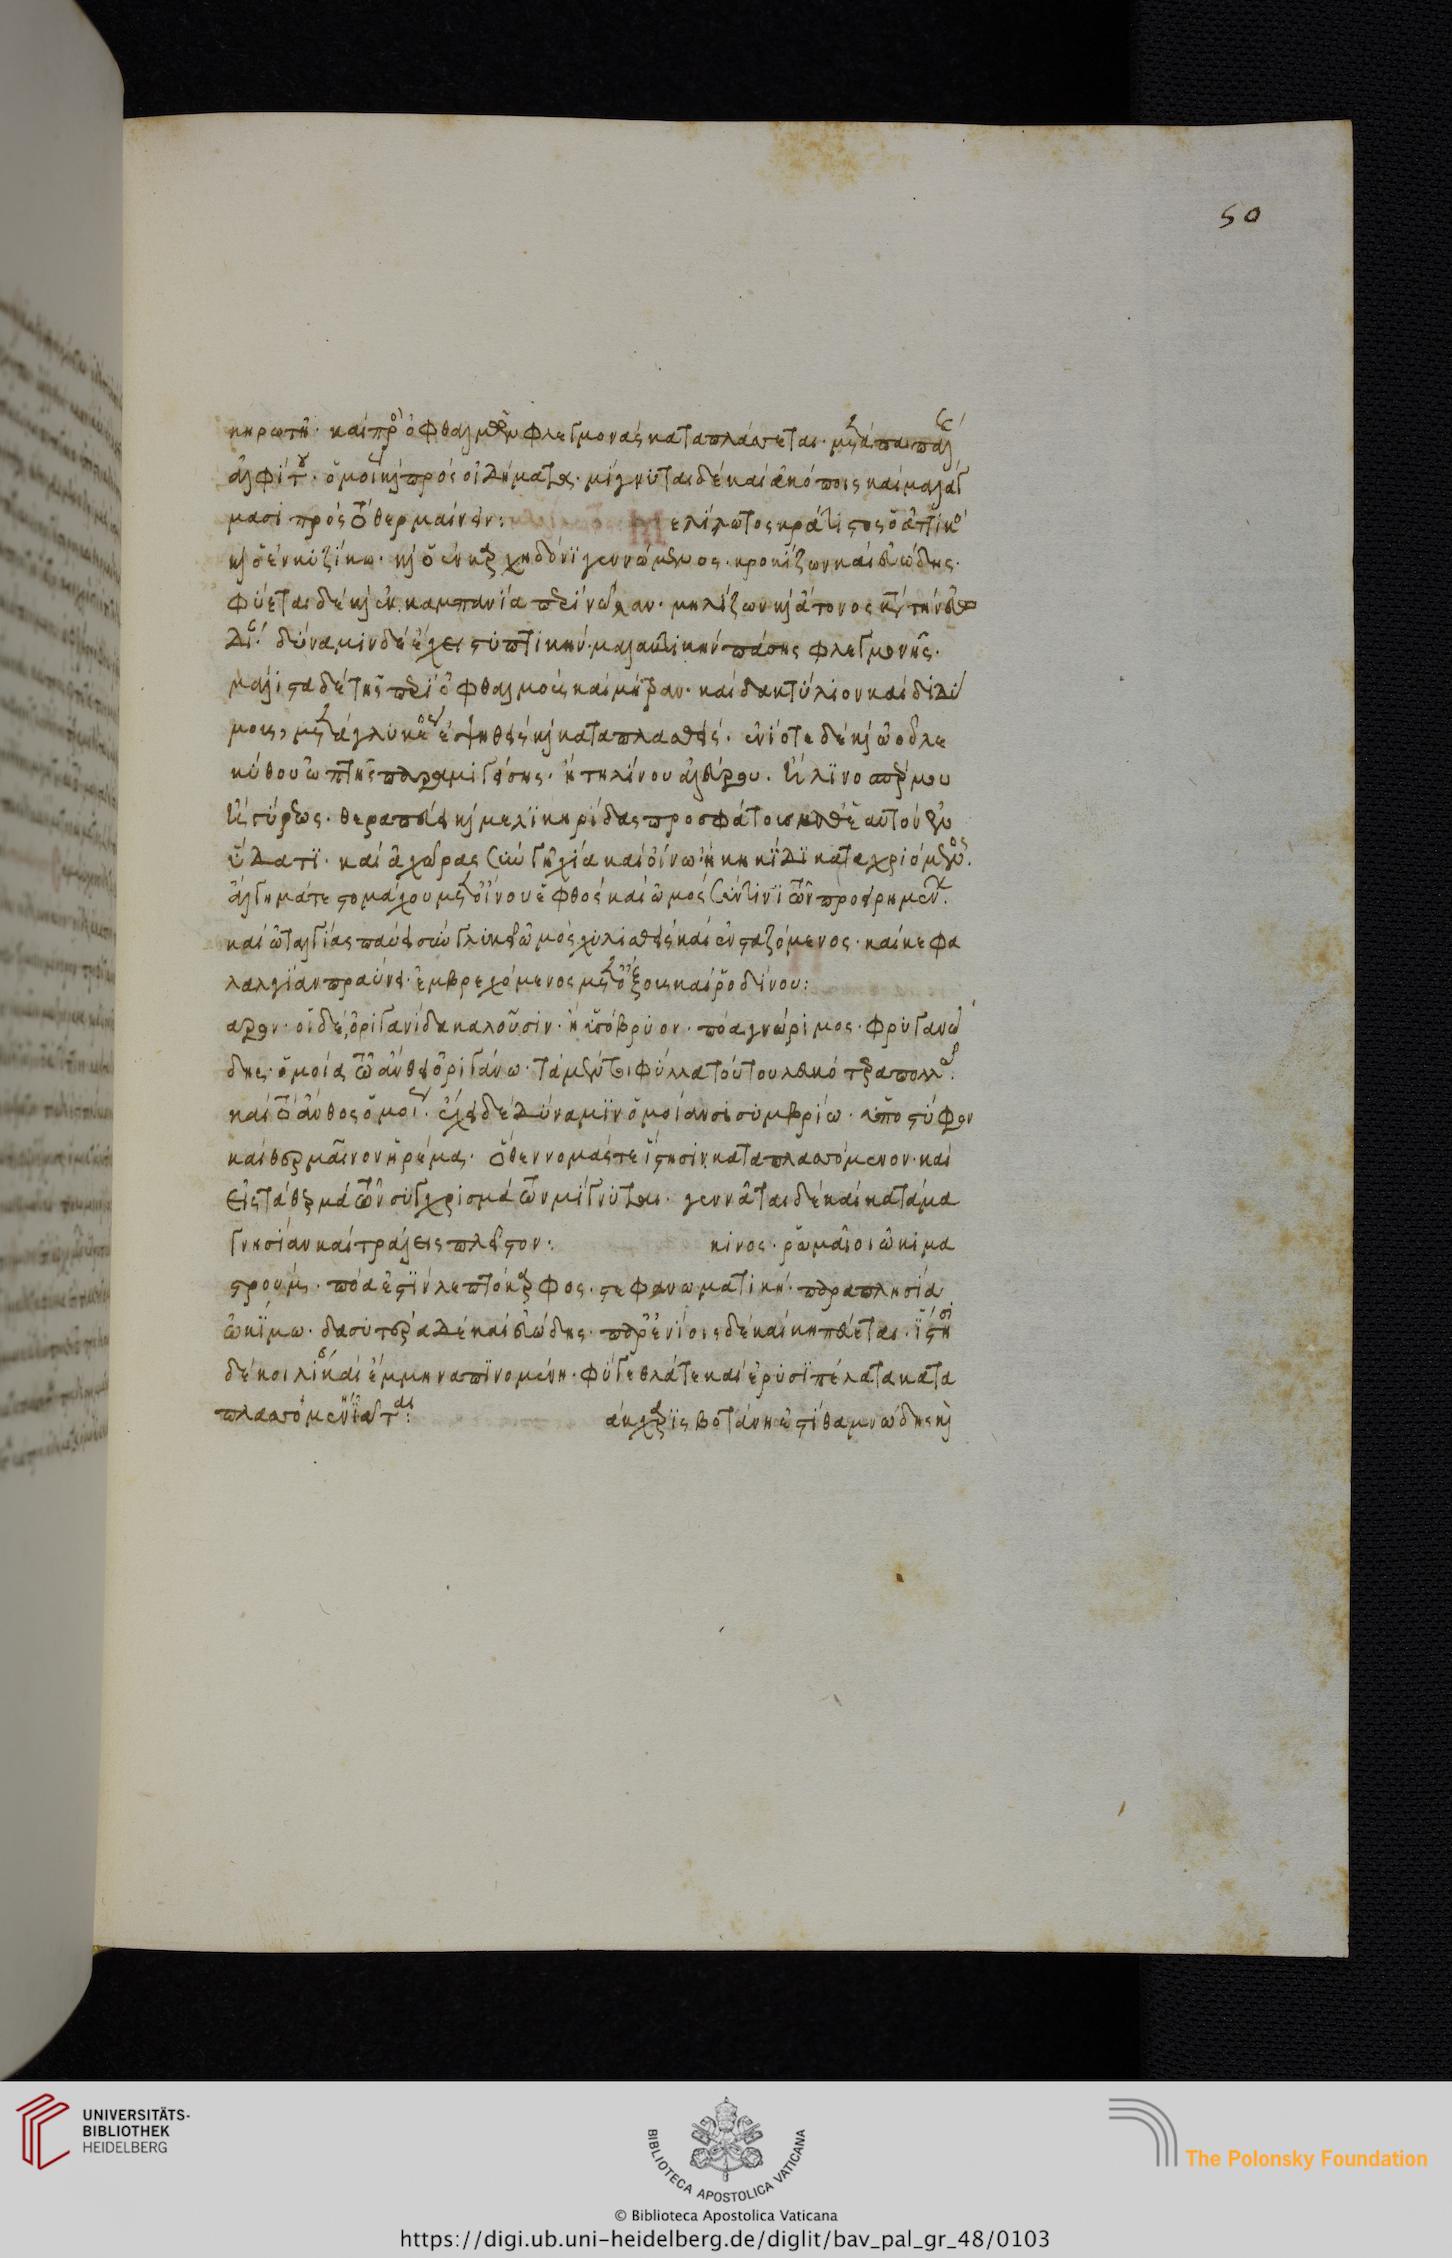 κηρωτῆ· καὶ πρὸς ὀφθαλμῶν φλεγμονὰς καταπλάσσεται· μετὰ
ἀλφίτου· ὁμοίως καὶ πρὸς οἰδήματα· μίγνυται δὲ καὶ ἀκόποις καὶ μαλάγ
μασι πρὸς τὸ θερμαίνειν: ελίλωτος κράτιστος ὁ ἀττικὸς
καὶ ὁ ἐν κυζίκω· καὶ ὁ ἐν καρχηδόνϊ γεννώμενος· κροκίζων καὶ εὐώδης·
φύεται δὲ καὶ ἐν καμπανία περὶ νώλαν· μηλίζων καὶ ἄτονος κατὰ τὴν εὐω
δίαν· δύναμιν δὲ ἔχει στυπτικήν· μαλακτικὴν πάσης φλεγμονῆς·
μάλιστα δὲ τῆς περὶ ὀφθαλμοὺς καὶ μήτραν· καὶ δακτύλιον καὶ διδύ
μους, μετὰ γλυκέος ἑψηθεὶς καὶ καταπλασθείς· ἐνίοτε δὲ καὶ ὠοῦ λε
κύθου ὀπτῆς παραμιγείσης· ἢ τηλίνου ἀλεύρου· ἢ λϊνοσπέρμου
ἢ γύρεως· θεραπεύει καὶ μελϊκηρίδας προσφάτους καθ' ἑαυτὸν ἐν
ὕδατϊ· καὶ ἀχώρας σὺν γῆ χία καὶ οἴνω ἢ κηκῖδϊ καταχριόμενος.
ἀλγήματά τε στομάχου μετ' οἴνου ἑφθὸς καὶ ὠμὸς σύν τινϊ τῶν προειρημένων.
καὶ ὠταλγίας παύει σὺν γλυκεῖ ὠμὸς χυλισθεὶς καὶ ἐνσταζόμενος· καὶ κεφα
λαλγίαν πραΰνει· ἐμβρεχόμενος μετ' ὄξους καὶ ῥοδίνου:
αρον· οἱ δὲ, ὀριγανίδα καλοῦσιν· ἢ πόα γνώριμος· φρυγανώ
δης· ὁμοία τῶ ἄνθει ὀριγάνω· τὰ μέντοι φύλλα τούτου λευκότερα πολλῶ.
καὶ τὸ ἄνθος ὅμοιον. ἔχει δὲ δύναμϊν ὁμοίαν σισυμβρίω· ὑποστύφον
καὶ θερμαῖνον ἠρέμα· ὅθεν νομάς τε ἵστησιν καταπλασσόμενον· καὶ
εἰς τὰ θερμὰ τῶν συγχρισμάτων μίγνυται· γεννᾶται δὲ καὶ κατὰ μα
γνησίαν καὶ τράλεις πλεῖστον: κινος· ῥωμαῖοι ὤκιμα
στρουμ· πόα ἐστὶν λεπτόκαρφος· στεφανωματϊκή· παραπλησία
ὠκίμω· δασυτέρα δὲ καὶ εὐώδης· παρ' ἐνίοις δὲ καὶ κηπεύεται· ἵστησι
δὲ κοιλίαν καὶ ἔμμηνα πϊνομένη· φύγεθλά τε καὶ ἐρυσϊπέλατα κατα
πλασσομένη ἰᾶται: άκχαρϊς βοτάνη ἐστὶ θαμνώδης καὶ
50
UNIVERSITÄTS-
BIBLIOTHEK
HEIDELBERG
BIBLIOTECA APOSTOLICA VATICANA
The Polonsky Foundation
© Biblioteca Apostolica Vaticana
https://digi.ub.uni-heidelberg.de/diglit/bav_pal_gr_48/0103